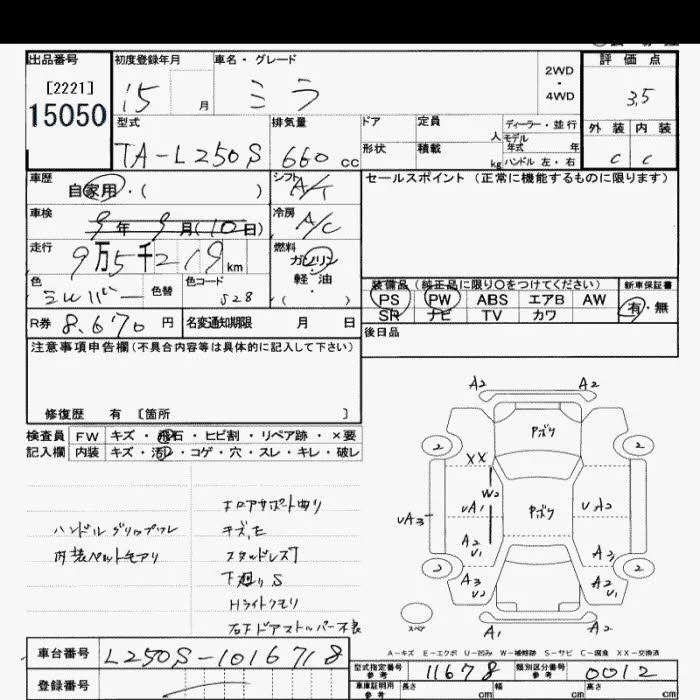 出品番号 初度登録年月 車名・グレード 評価点
[2221] 15 月 ミラ 2WD・4WD 3.5
15050
型式 排気量 ドア 定員 人 ディーラー・並行 外装 内装
TA-L250S 660 cc 形状 積載 kg モデル年式 年 ハンドル 左・右 C C
車歴 自家用・( ) シフト A/T セールスポイント (正常に機能するものに限ります)
車検 9年 9月(10日) 冷房 A/C
走行 9万5千219km 燃料 ガソリン
軽油
・
( )
色 シルバー 色替 色コード S28
装備品 (純正品に限り○をつけてください) 新車保証書
PS PW ABS エアB AW 有・無
SR ナビ TV カワ
R券 8,670 円 名変通知期限 月 日
後日品
注意事項申告欄(不具合内容等は具体的に記入して下さい)
修復歴 有 [箇所 ]
検査員 FW キズ・飛石・ヒビ割・リペア跡・×要
記入欄 内装 キズ・汚れ・コゲ・穴・スレ・キレ・破レ
ドロアサポート曲り
ハンドルグリップスレ キズ,E
内装ペットモアリ スタッドレスT
下廻りS
Hライトクモリ
右Fドアストッパー不良
A2 A2
Pボケ
2 2
XX
W2
UA3 UA1 Pボケ UA2
A2 U1 A2,
2 2
A3 U2 A2 U1
スペア A1 A2
A-キズ E-エクボ U-凹み W-補修跡 S-サビ C-腐食 XX-交換済
車台番号 L250S-1016718 型式指定番号 参考 11678 類別区分番号 参考 0012
登録番号 車庫証明用 参考 長さ cm 幅 cm 高さ cm